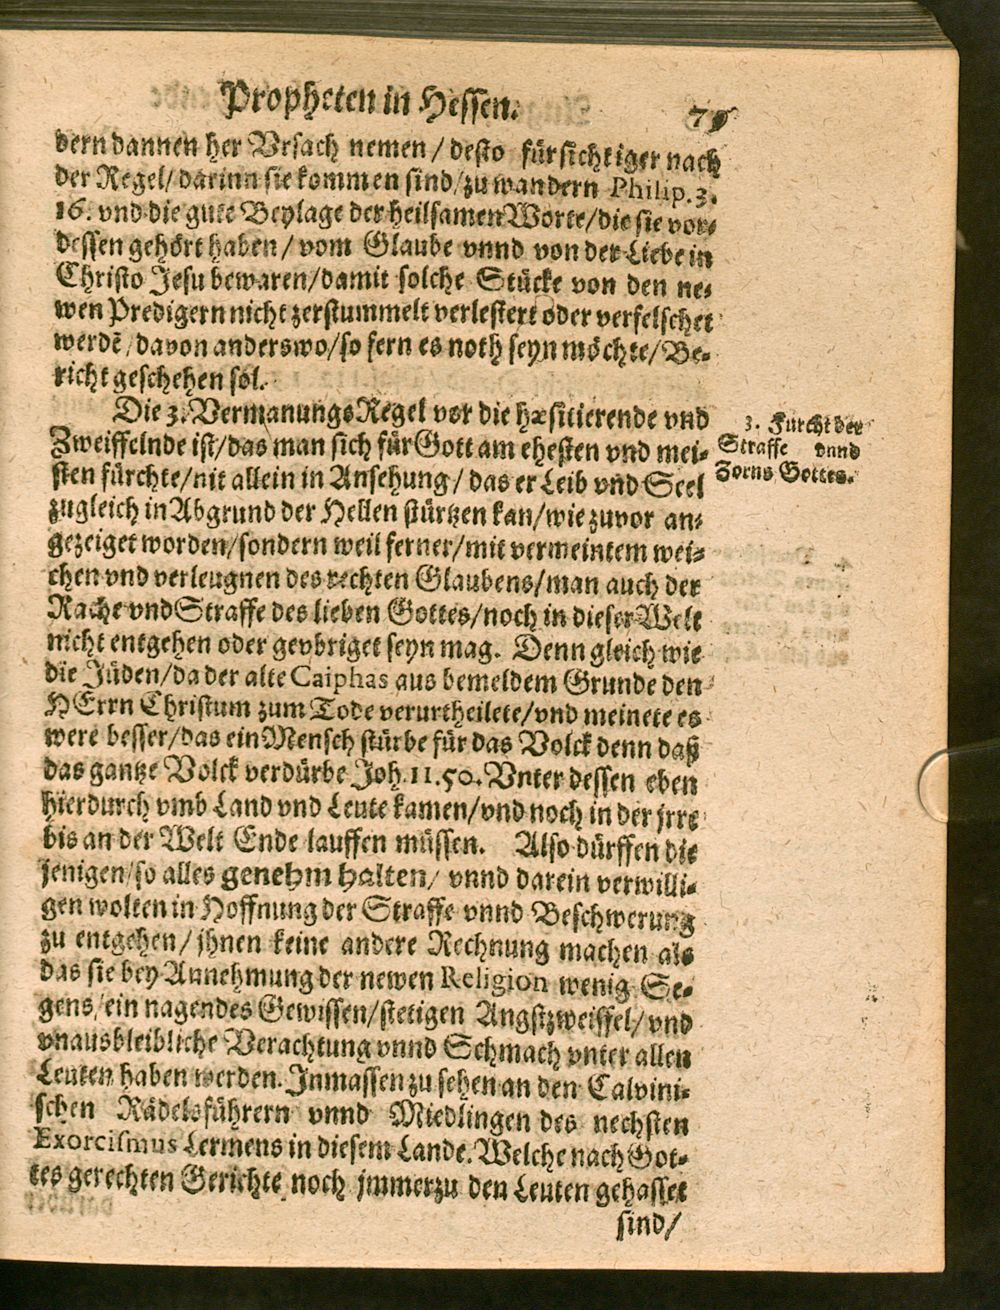 Propheten in Hessen. 79
dern dannen her Vrsach nemen / desto fürsichtiger nach
der Regel / darinn sie kommen sind / zu wandern Philip. 3.
16. vnd die gute Beylage der heilsamen Worte / die sie vor-
dessen gehört haben / vom Glaube vnnd von der Liebe in
Christo Jesu bewaren / damit solche Stücke von den ne-
wen Predigern nicht zerstummelt verlestert oder verfelschet
werdē / davon anderswo / so fern es noth seyn möchte / Be-
richt geschehen sol.
Die 3. Vermanungs Regel vor die hæsitierende vnd
Zweiffelnde ist / das man sich für Gott am ehesten vnd mei-
sten fürchte / nit allein in Ansehung / das er Leib vnd Seel
zugleich in Abgrund der Hellen stürtzen kan / wie zuvor an-
gezeiget worden / sondern weil ferner / mit vermeintem wei-
chen vnd verleugnen des rechten Glaubens / man auch der
Rache vnd Straffe des lieben Gottes / noch in dieser Welt
nicht entgehen oder gevbriget seyn mag. Denn gleich wie
die Jüden / da der alte Caiphas aus bemeldem Grunde den
HErrn Christum zum Tode verurtheilete / vnd meinete es
were besser / das ein Mensch stürbe für das Volck denn daß
das gantze Volck verdürbe Joh. 11. 50. Vnter dessen eben
hierdurch vmb Land vnd Leute kamen / vnd noch in der jrre
bis an der Welt Ende lauffen müssen. Also dürffen die
jenigen / so alles genehm halten / vnnd darein verwilli-
gen wolten in Hoffnung der Straffe vnnd Beschwerung
zu entgehen / jhnen keine andere Rechnung machen als
das sie bey Annehmung der newen Religion wenig Se-
gens / ein nagendes Gewissen / stetigen Angstzweiffel / vnd
vnausbleibliche Verachtung vnnd Schmach vnter allen
Leuten haben werden. Inmassen zu sehen an den Calvini-
schen Rädelsführern vnnd Miedlingen des nechsten
Exorcismus Lermens in diesem Lande. Welche nach Got-
tes gerechten Gerichte noch jmmerzu den Leuten gehasset
sind /
3. Furcht der
Straffe vnnd
Zorns Gottes.